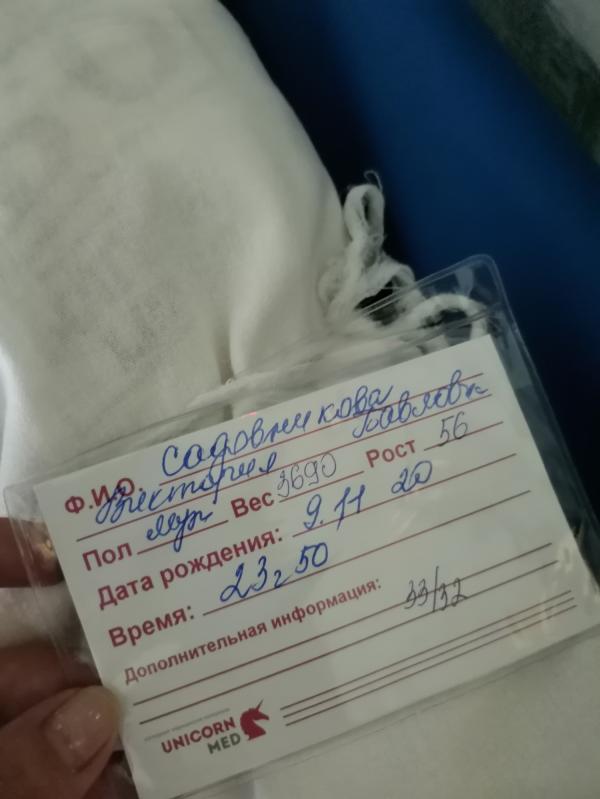 Ф.И.О. Садовникова
Виктория Павловн
Пол муж Вес 3690 Рост 56
Дата рождения: 9.11 20
Время: 23 г 50
Дополнительная информация:
33/32
UNICORN
MED